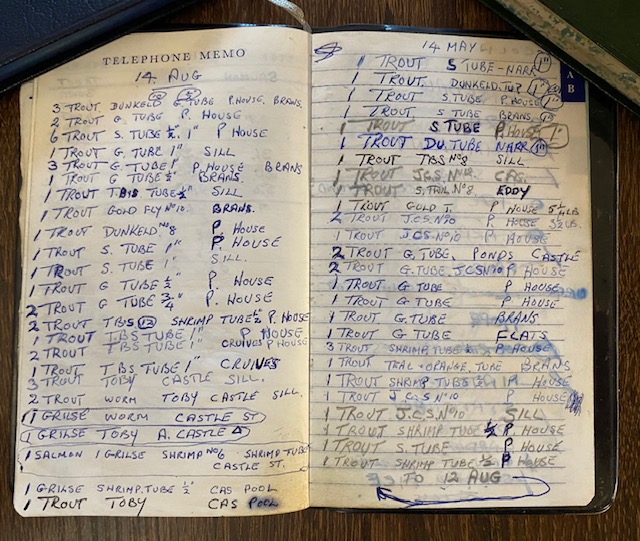 TELEPHONE MEMO
14 AUG
3 TROUT DUNKELD G.TUBE P.HOUSE. BRANS.
2 TROUT G. TUBE P. HOUSE
6 TROUT S. TUBE ½". 1" P HOUSE
1 TROUT G. TUBE 1" SILL
3 TROUT G. TUBE 1" P. HOUSE BRANS
1 TROUT G TUBE ½" BRANS
1 TROUT T.B.S TUBE ½" SILL
1 TROUT GOLD FLY Nº10. BRANS.
1 TROUT DUNKELD Nº8 P. HOUSE
1 TROUT S. TUBE 1" P. HOUSE
1 TROUT S. TUBE 1" SILL.
1 TROUT G TUBE ½" P. HOUSE
2 TROUT G TUBE ¾" P. HOUSE
2 TROUT TBS 12 SHRIMP TUBE ½" P. HOUSE
1 TROUT T.BS TUBE 1" P HOUSE
2 TROUT TBS TUBE CRUIVES P HOUSE
1 TROUT T BS TUBE 1" CRUINES
3 TROUT TOBY CASTLE SILL.
2 TROUT WORM TOBY CASTLE SILL.
1 GRILSE WORM CASTLE ST
1 GRILSE TOBY A. CASTLE
1 SALMON 1 GRILSE SHRIMP Nº6 SHRIMP TUBE
CASTLE ST.
1 GRILSE SHRIMP.TUBE ½" CAS POOL
1 TROUT TOBY CAS POOL
14 MAY
1 TROUT S TUBE - NARR 1"
1 TROUT. DUNKELD.TUP 1"
1 TROUT S.TUBE P.HOUSE 1"
1 TROUT S. TUBE BRANS 1"
1 TROUT S.TUBE P.HOUSE 1"
1 TROUT DU.TUBE NARR 1"
1 TROUT TBS Nº8 SILL
1 TROUT J.C.S. Nº CAS.
1 TROUT S. Nº8. EDDY
1 TROUT GOLD T. P HOUSE 5¼ LB
2 TROUT J.C.S. Nº10 P. HOUSE 3½ LB.
1 TROUT JCS Nº10 P HOUSE
2 TROUT G.TUBE. PONDS CASTLE
2 TROUT G.TUBE.JCS Nº10 P HOUSE
1 TROUT G TUBE P HOUSE
1 TROUT G TUBE P HOUSE
1 TROUT G.TUBE BRANS
1 TROUT G TUBE FLATS
3 TROUT SHRIMP.TUBE ½ P HOUSE
1 TROUT TEAL + ORANGE. TUBE BRANS
1 TROUT SHRIMP TUBE ½ P HOUSE
1 TROUT J.C.S Nº10 P HOUSE
1 TROUT J.C.S Nº10 SILL
1 TROUT SHRIMP TUBE ½ P. HOUSE
1 TROUT S.TUBE P HOUSE
1 TROUT SHRIMP TUBE ½ P HOUSE
TO 12 AUG
A B